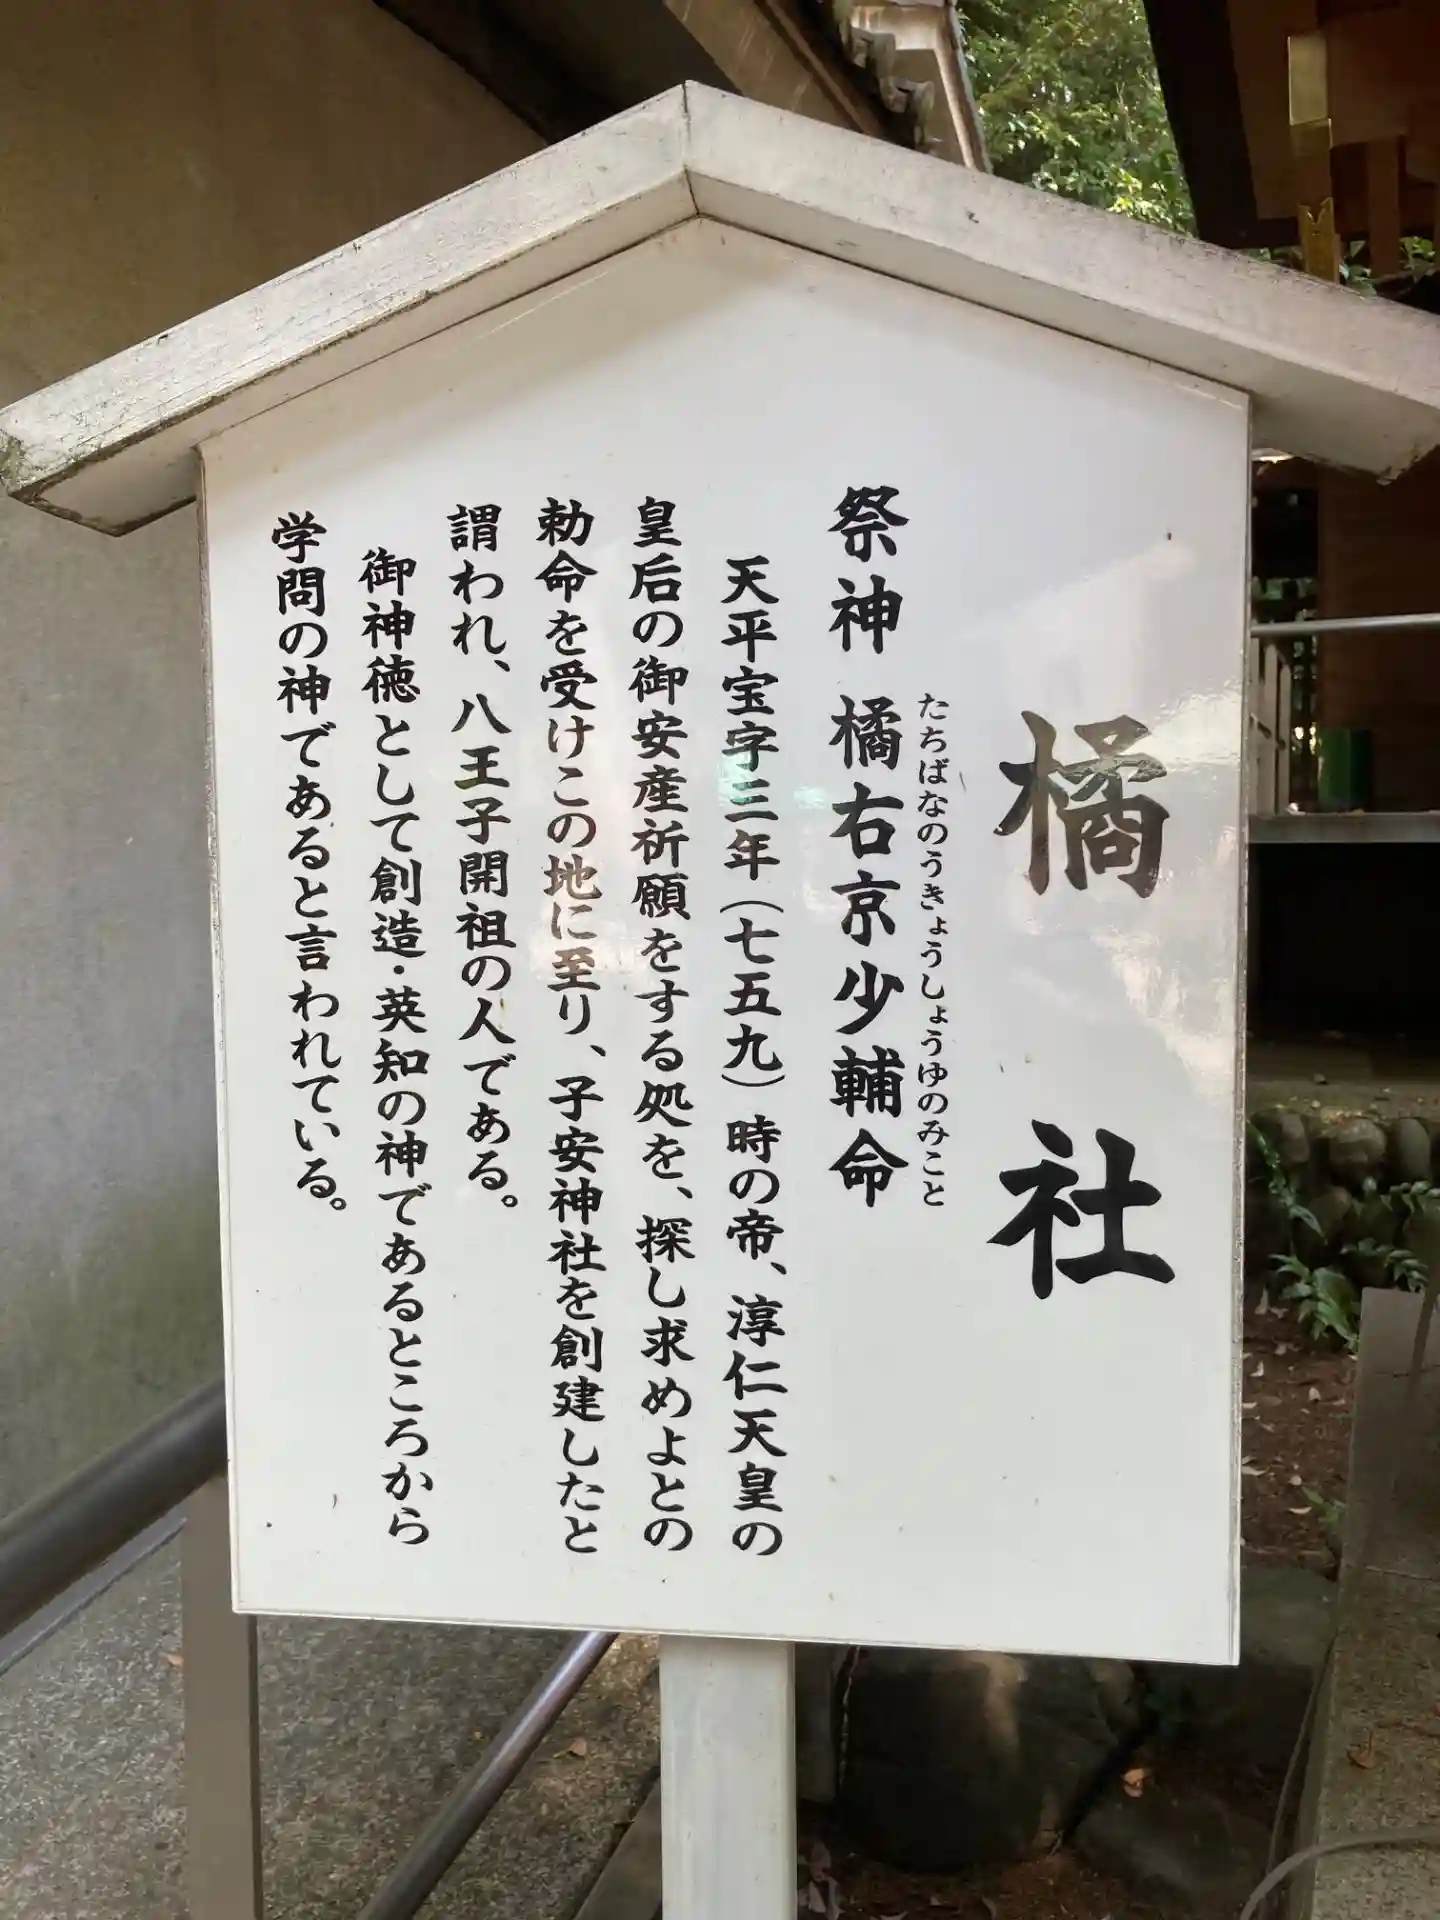 橘社
祭神 橘右京少輔命
たちばなのうきょうしょうゆのみこと
天平宝字三年(七五九)時の帝、淳仁天皇の
皇后の御安産祈願をする処を、探し求めよとの
勅命を受けこの地に至り、子安神社を創建したと
謂われ、八王子開祖の人である。
御神徳として創造・英知の神であるところから
学問の神であると言われている。